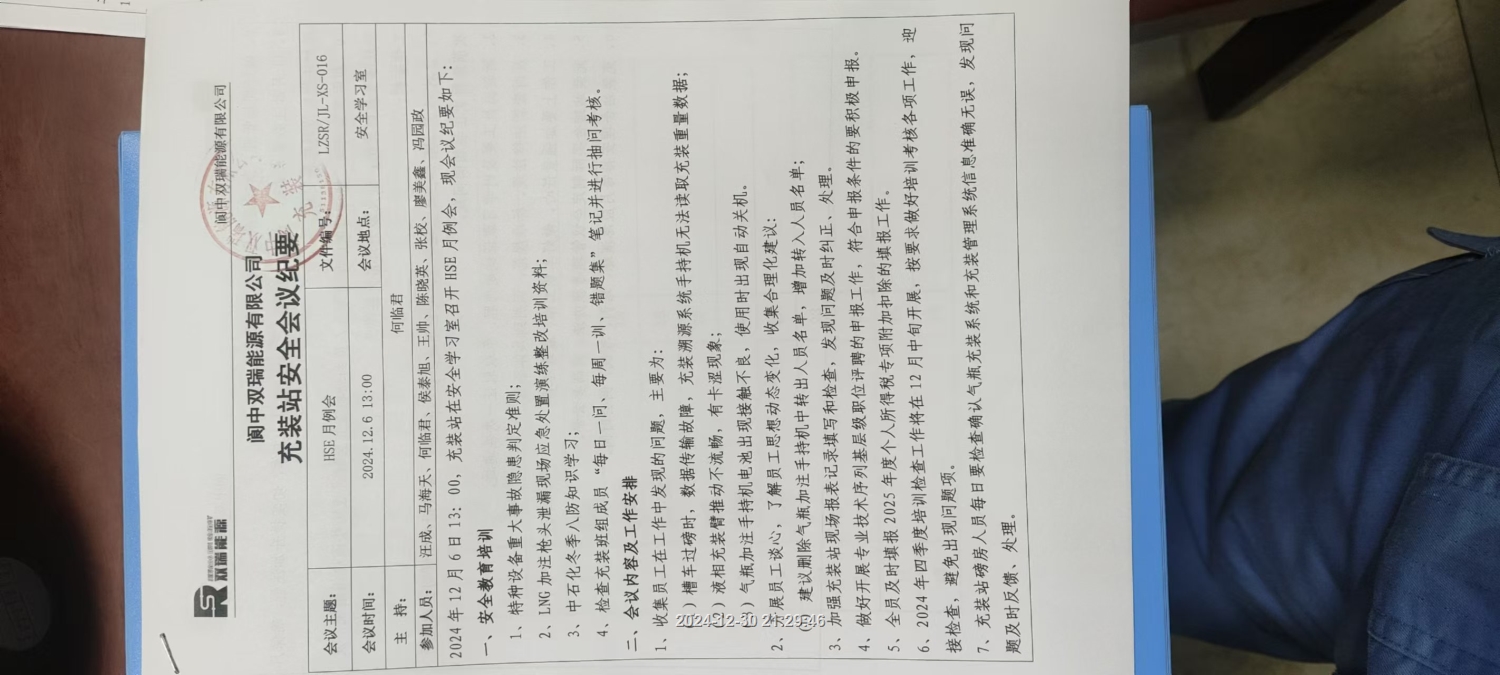 双瑞能源
阆中双瑞能源有限公司
阆中双瑞能源有限公司
充装站安全会议纪要
会议主题： HSE 月例会 文件编号： LZSR/JL-XS-016
会议时间： 2024.12.6 13:00 会议地点： 安全学习室
主 持： 何临君
参加人员： 汪成、马海天、何临君、侯秦旭、王帅、陈晓英、张校、廖美鑫、冯园政
2024 年 12 月 6 日 13：00，充装站在安全学习室召开 HSE 月例会，现会议纪要如下：
一、安全教育培训
1、特种设备重大事故隐患判定准则；
2、LNG 加注枪头泄漏现场应急处置演练整改培训资料；
3、中石化冬季八防知识学习；
4、检查充装班组成员“每日一问、每周一训、错题集”笔记并进行抽问考核。
二、会议内容及工作安排
1、收集员工在工作中发现的问题，主要为：
）槽车过磅时，数据传输故障，充装溯源系统手持机无法读取充装重量数据；
）液相充装臂推动不流畅，有卡涩现象；
）气瓶加注手持机电池出现接触不良，使用时出现自动关机。
2、开展员工谈心，了解员工思想动态变化，收集合理化建议：
建议删除气瓶加注手持机中转出人员名单，增加转入人员名单；
3、加强充装站现场报表记录填写和检查，发现问题及时纠正、处理。
4、做好开展专业技术序列基层级职位评聘的申报工作，符合申报条件的要积极申报。
5、全员及时填报 2025 年度个人所得税专项附加扣除的填报工作。
6、2024 年四季度培训检查工作将在 12 月中旬开展，按要求做好培训考核各项工作，迎
接检查，避免出现问题项。
7、充装站磅房人员每日要检查确认气瓶充装系统和充装管理系统信息准确无误，发现问
题及时反馈、处理。
2024-12-30 21:29:46